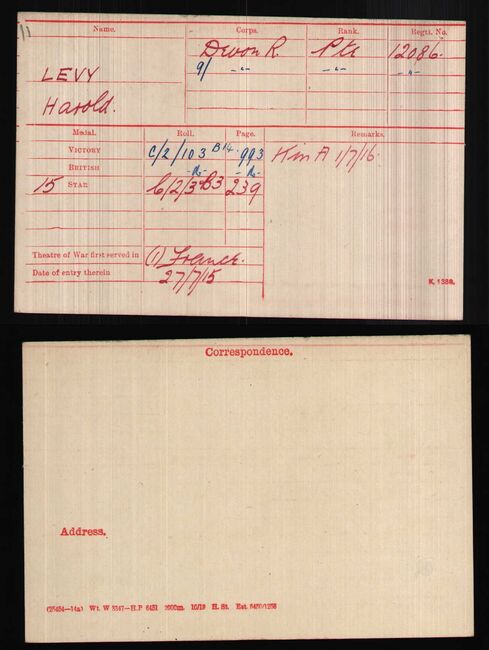 Name. Corps. Rank. Regtl. No.
Devon R. Pte 12086.
LEVY 9/ -"- -"- -"-
Harold.
Medal. Roll. Page. Remarks.
VICTORY C/2/103 B14. 993 K in A 1/7/16.
BRITISH -do- -do-
15 STAR C/2/3 B3 239
Theatre of War first served in (1) France.
Date of entry therein 27/7/15
K. 1380.
Correspondence.
Address.
(25454—14a) Wt. W 3347—R.P 6451 2000m. 10/19 H. St. Est 6450/1258